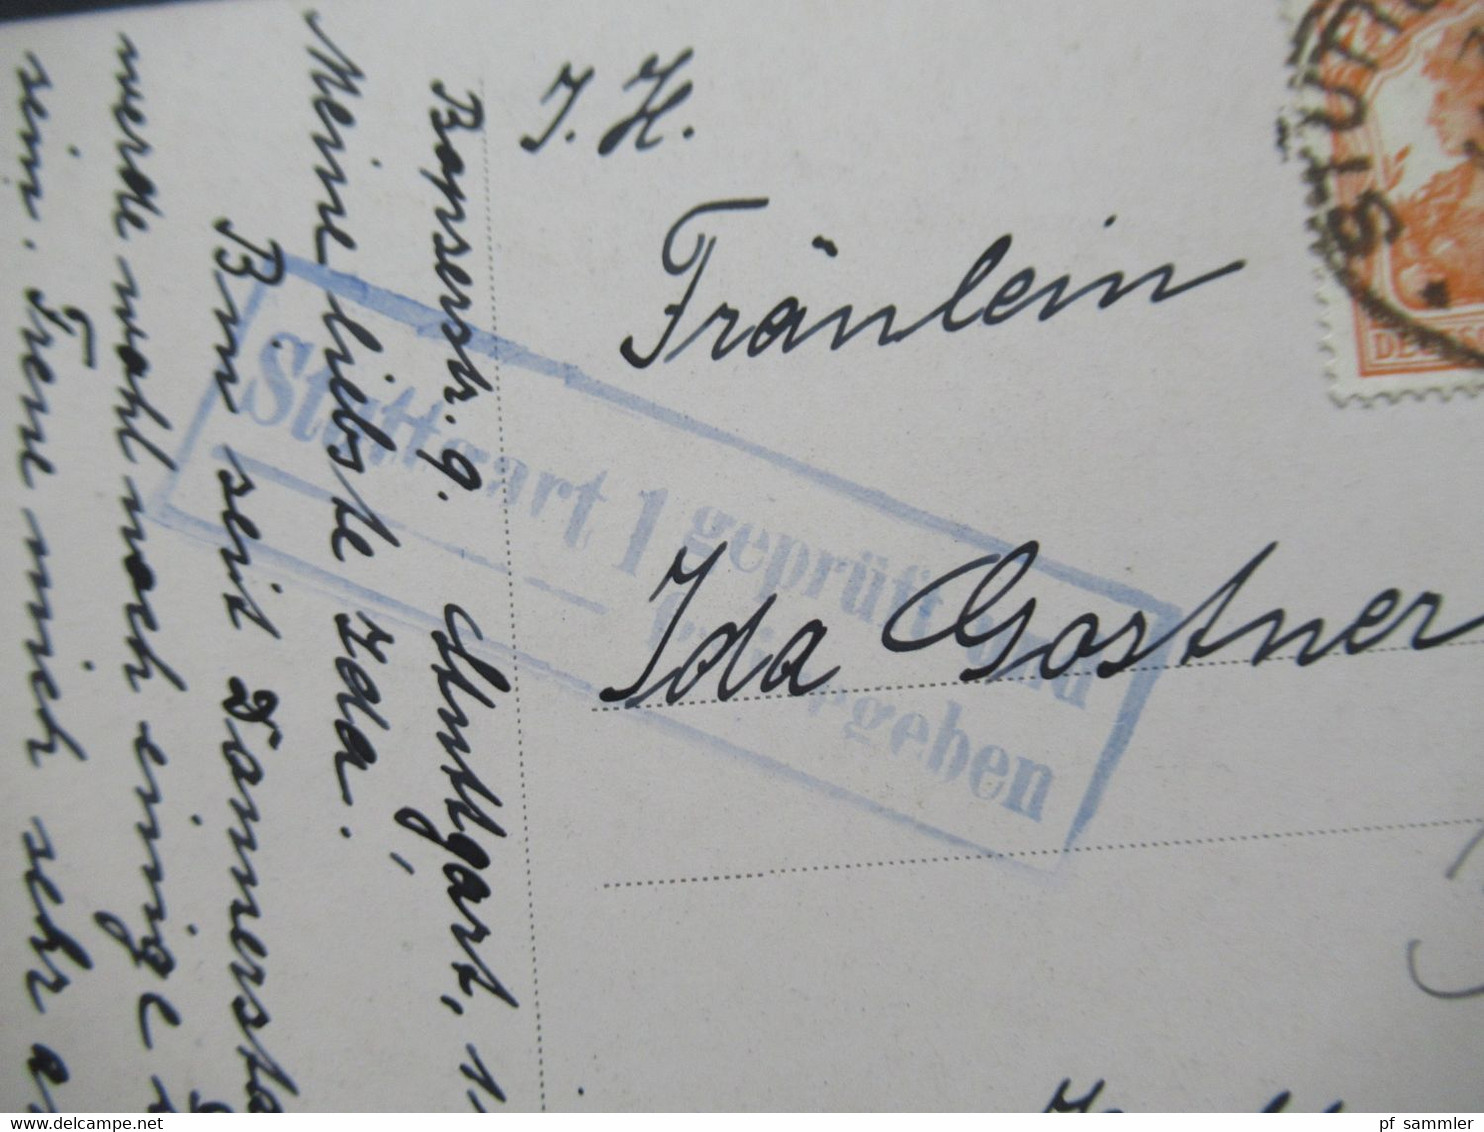 I. H.
Fräulein
Ida Gostner
Stuttgart 1 geprüft und
freizugeben
Bopserstr. 9. Stuttgart,
Meine liebste Ida.
Bin seit Donnersta
werde wohl noch einige
sein. Freue mich sehr
STUTT
DE
pf_sammler